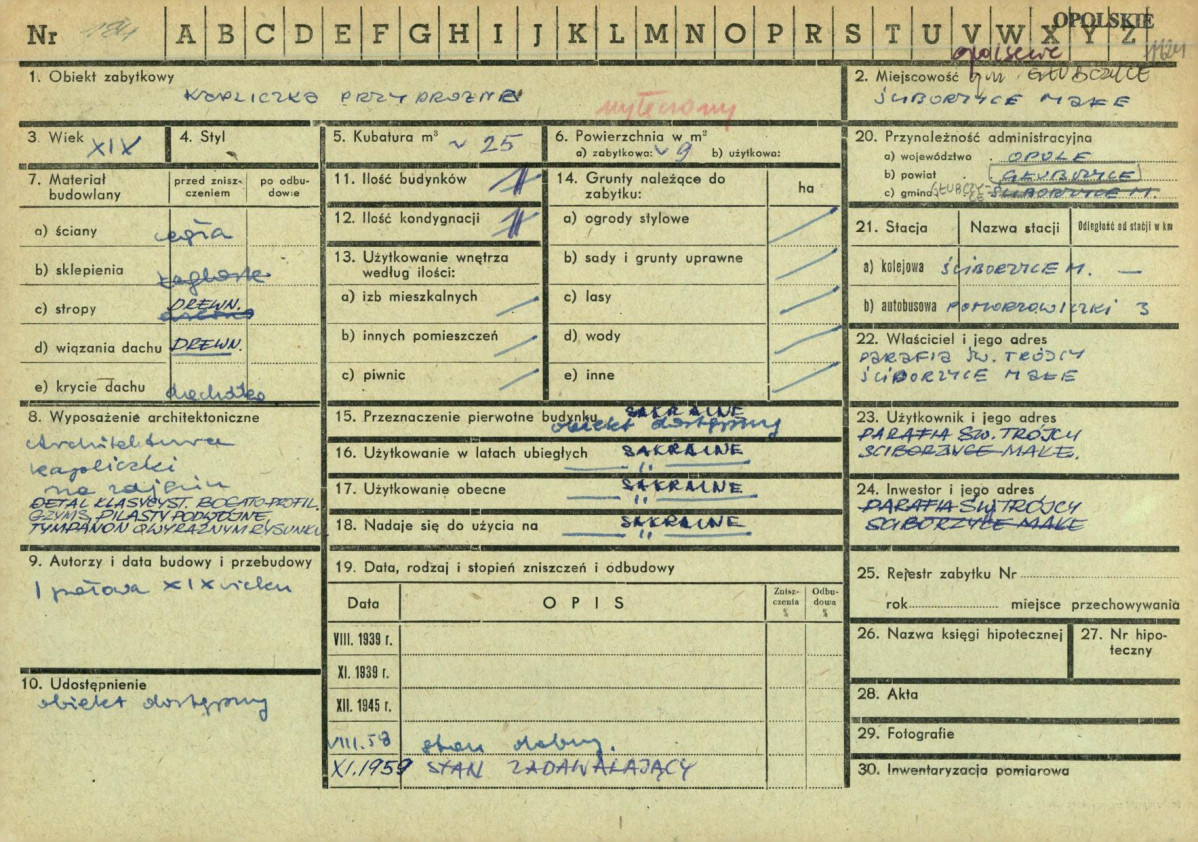 Nr 184 A B C D E F G H I J K L M N O P R S T U V W X Y Z
OPOLSKIE
opolskie
1. Obiekt zabytkowy
KAPLICZKA PRZYDROŻNA
2. Miejscowość
gm. GŁUBCZYCE
ŚCIBORZYCE MAŁE
3. Wiek XIX
4. Styl
5. Kubatura m³ ~ 25
6. Powierzchnia w m²
a) zabytkowa: ~ 9 b) użytkowa:
7. Materiał budowlany
przed zniszczeniem
po odbudowie
a) ściany cegła
b) sklepienia żaglaste
c) stropy DREWN.
d) wiązania dachu DREWN.
e) krycie dachu dachówka
8. Wyposażenie architektoniczne
Architektura
kapliczki
na zdjęciu
DETAL KLASYCYST. BOGATO PROFIL.
GZYMS, PILASTY PODWÓJNE
TYMPANON O WYRAŹNYM RYSUNKU
9. Autorzy i data budowy i przebudowy
I połowa XIX wieku
10. Udostępnienie
obiekt dostępny
11. Ilość budynków
12. Ilość kondygnacji
13. Użytkowanie wnętrza
według ilości:
a) izb mieszkalnych
b) innych pomieszczeń
c) piwnic
14. Grunty należące do
zabytku:
ha
a) ogrody stylowe
b) sady i grunty uprawne
c) lasy
d) wody
e) inne
15. Przeznaczenie pierwotne budynku SAKRALNE
obiekt dostępny
16. Użytkowanie w latach ubiegłych SAKRALNE
17. Użytkowanie obecne SAKRALNE
18. Nadaje się do użycia na SAKRALNE
19. Data, rodzaj i stopień zniszczeń i odbudowy
Data
OPIS
Zniszczenia %
Odbudowa %
VIII. 1939 r.
XI. 1939 r.
XII. 1945 r.
VIII. 58 stan dobry.
XI. 1959 STAN ZADAWALAJĄCY
20. Przynależność administracyjna
a) województwo OPOLE
b) powiat GŁUBCZYCE
c) gmina GŁUBCZYCE ŚCIBORZYCE M.
21. Stacja
Nazwa stacji
Odległość od stacji w km
a) kolejowa ŚCIBORZYCE M. —
b) autobusowa POMORZOWICZKI 3
22. Właściciel i jego adres
PARAFIA ŚW. TRÓJCY
ŚCIBORZYCE MAŁE
23. Użytkownik i jego adres
PARAFIA ŚW. TRÓJCY
ŚCIBORZYCE MAŁE.
24. Inwestor i jego adres
PARAFIA ŚW. TRÓJCY
ŚCIBORZYCE MAŁE
25. Rejestr zabytku Nr
rok miejsce przechowywania
26. Nazwa księgi hipotecznej
27. Nr hipoteczny
28. Akta
29. Fotografie
30. Inwentaryzacja pomiarowa